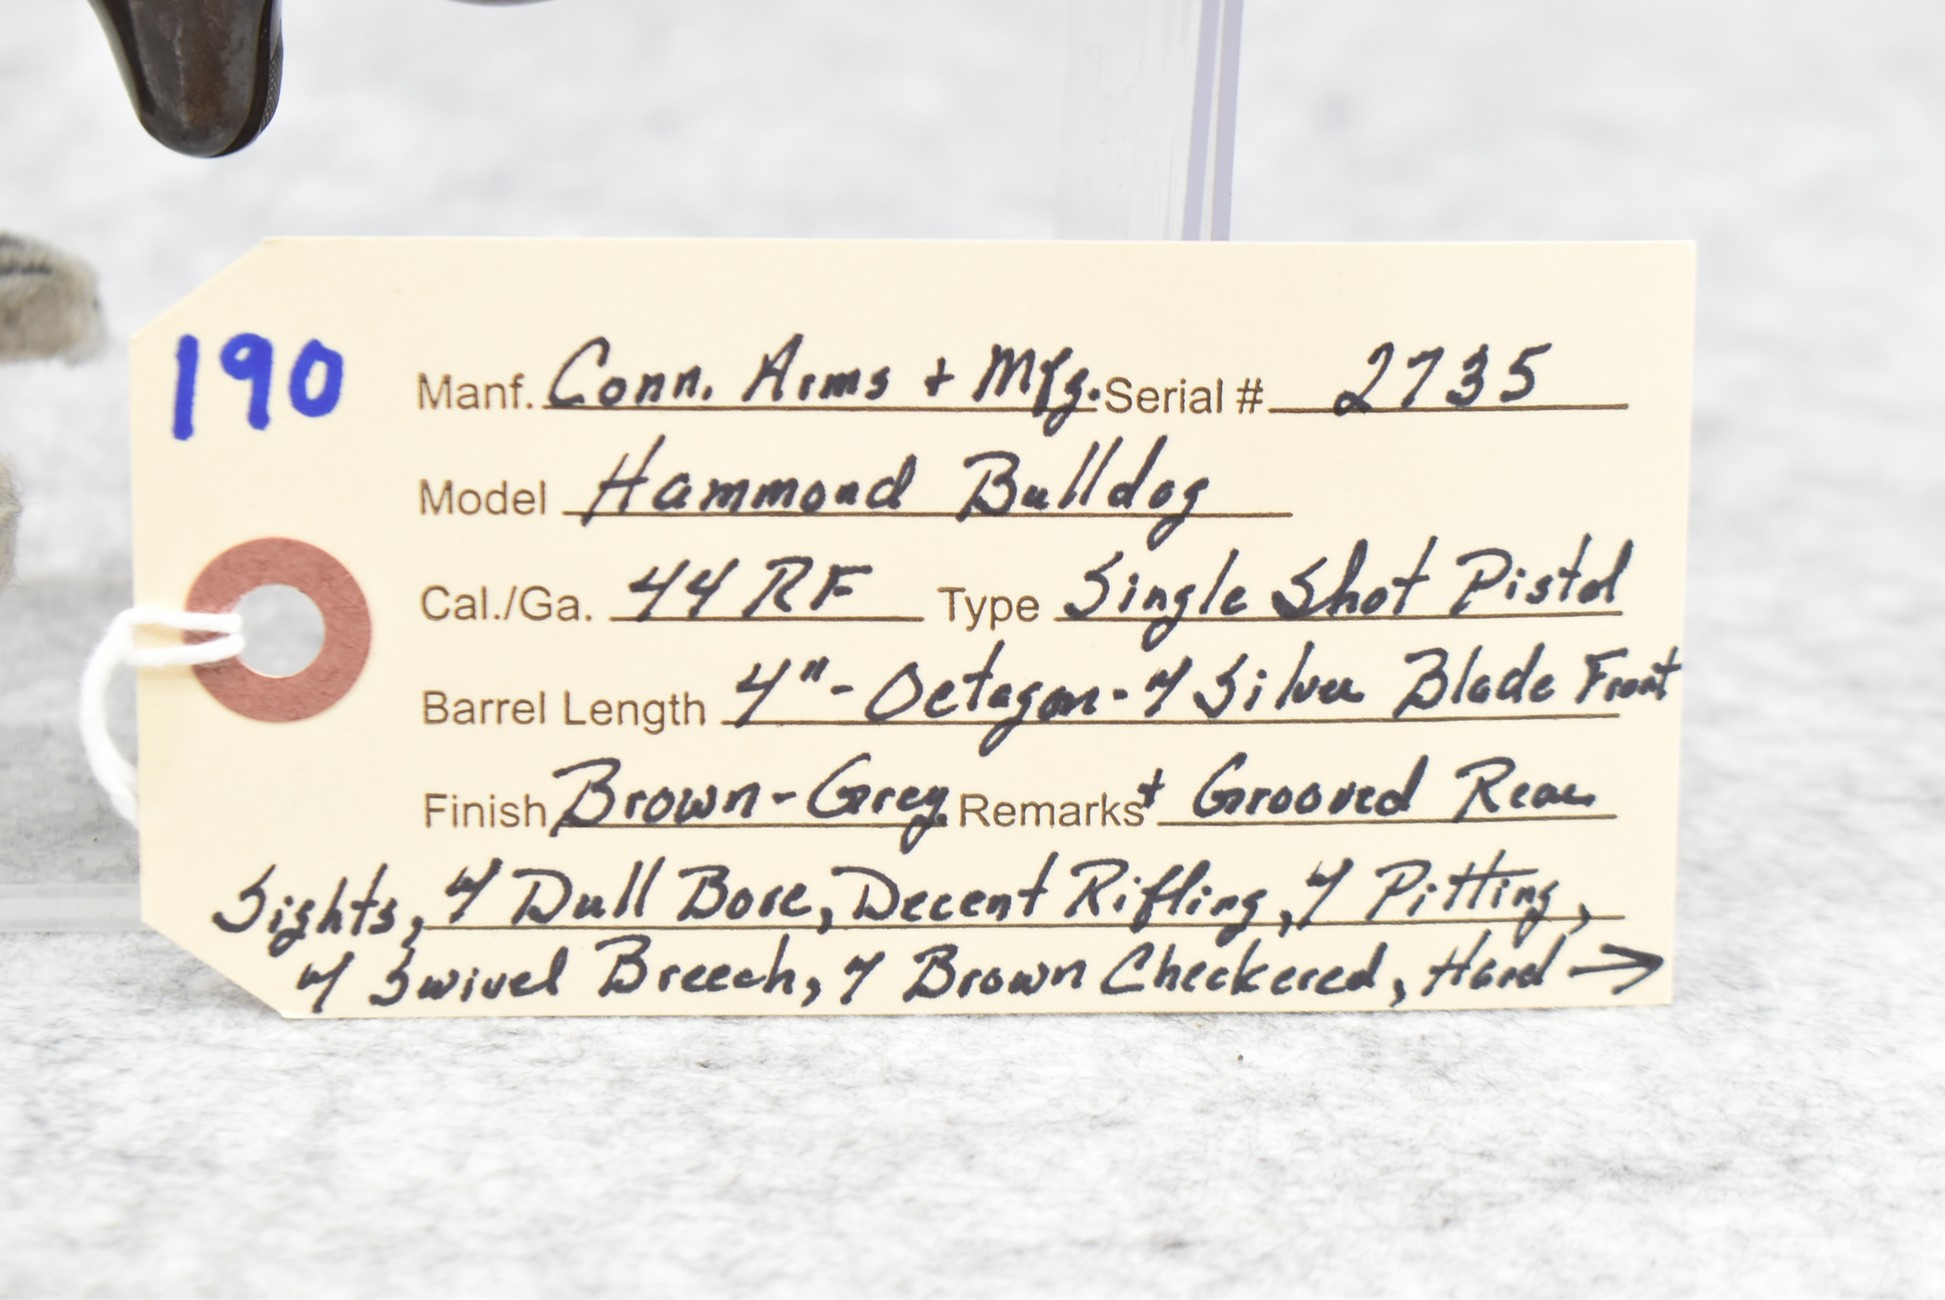 190
Manf. Conn. Arms + Mfg. Serial # 2735
Model Hammond Bulldog
Cal./Ga. 44 RF Type Single Shot Pistol
Barrel Length 4"- Octagon - w/ Silver Blade Front
Finish Brown-Grey Remarks + Grooved Rear
Sights, w/ Dull Bore, Decent Rifling, w/ Pitting,
w/ Swivel Breech, w/ Brown Checkered, Hard →